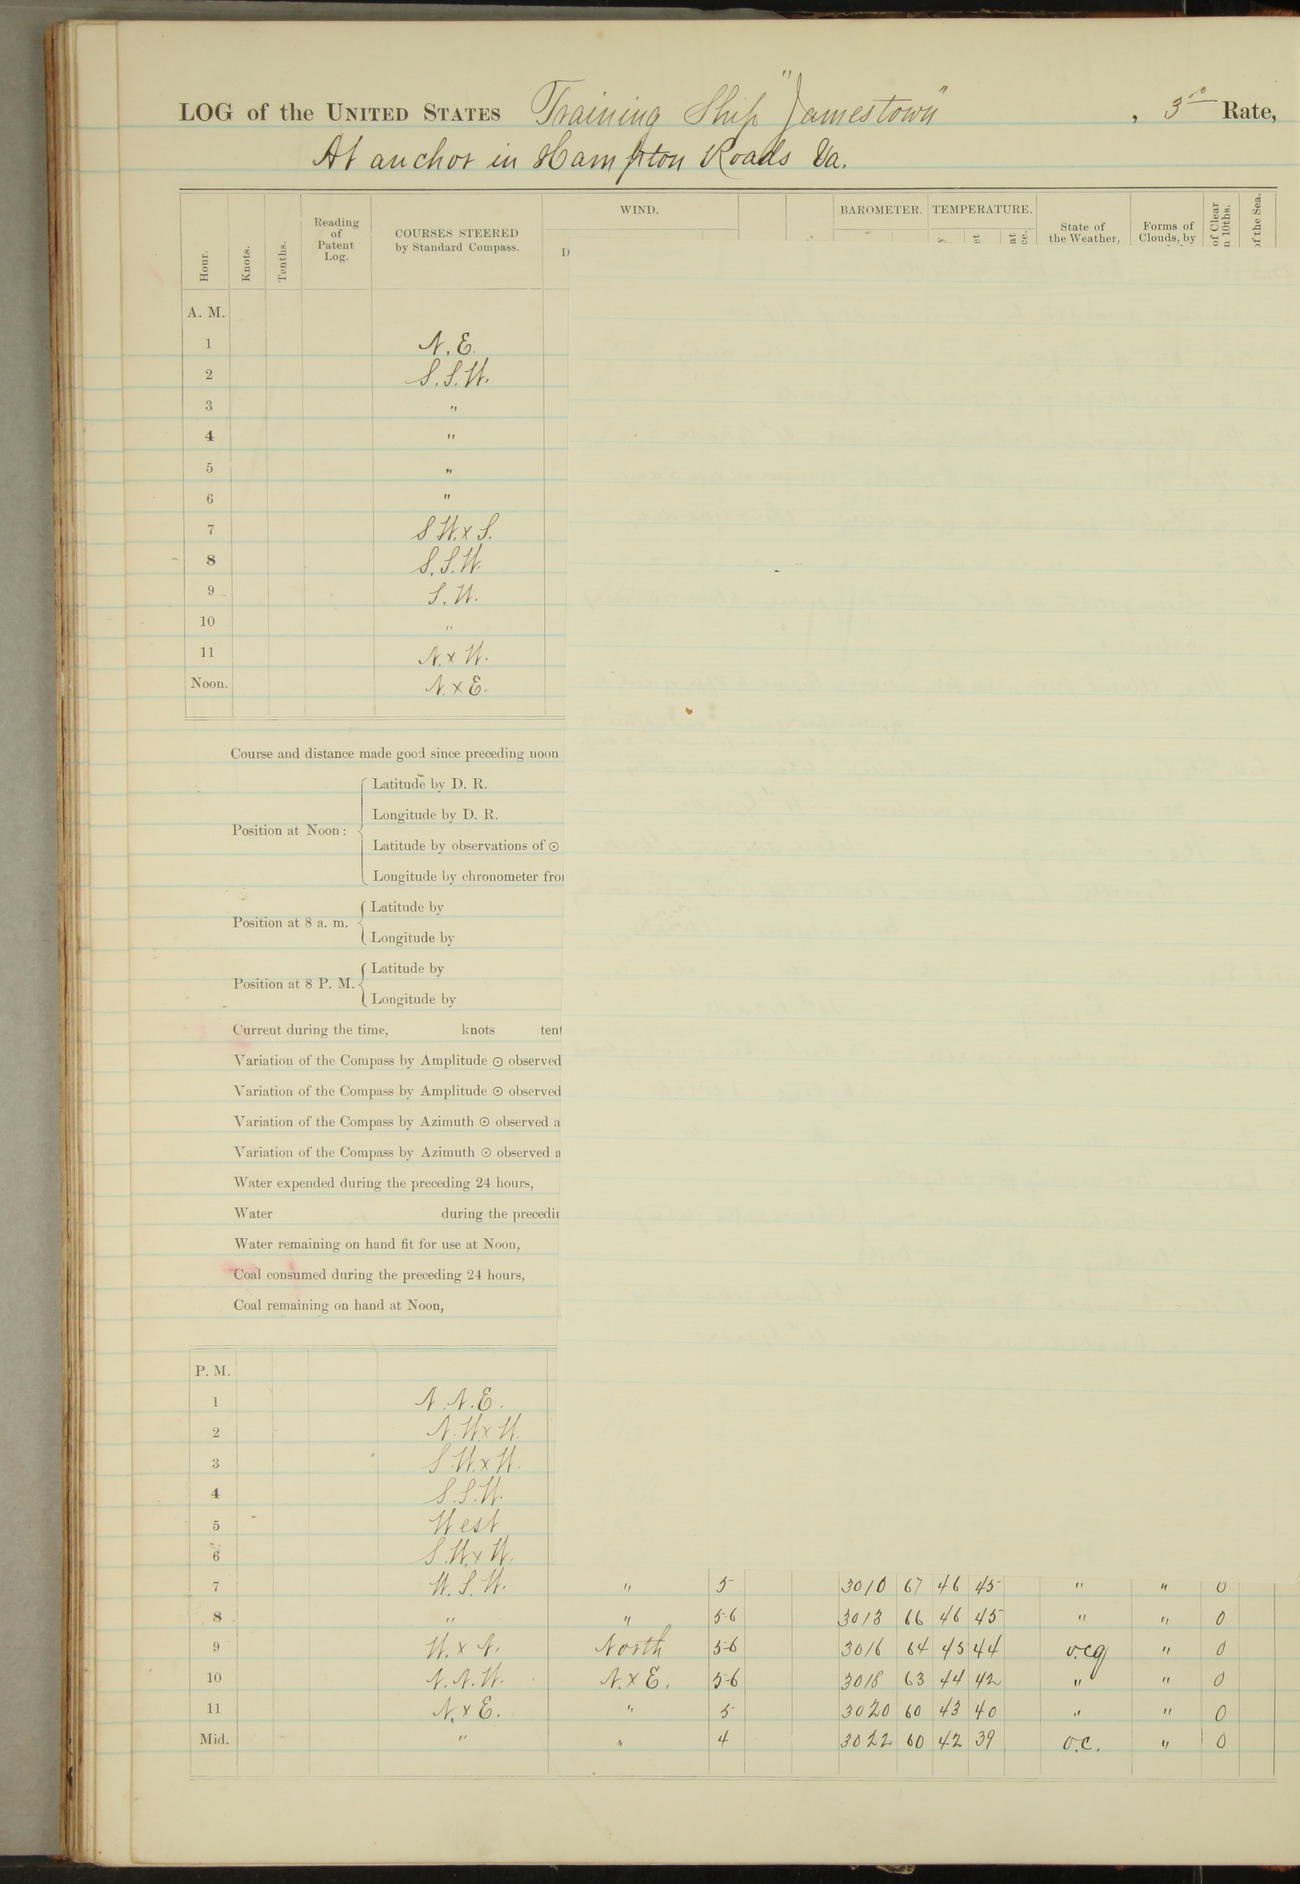 LOG of the UNITED STATES Training Ship "Jamestown", 3rd Rate,
At anchor in Hampton Roads Va.
Hour. Knots. Tenths. Reading of Patent Log. COURSES STEERED by Standard Compass. WIND. BAROMETER. TEMPERATURE. State of the Weather, Forms of Clouds, by of Clear n 10ths. of the Sea.
A. M.
1 N.E.
2 S.S.W.
3 "
4 "
5 "
6 "
7 S W. x S.
8 S.S.W.
9 S.W.
10 "
11 N. x W.
Noon. N. x E.
Course and distance made good since preceding noon
Position at Noon:
Latitude by D. R.
Longitude by D. R.
Latitude by observations of ⊙
Longitude by chronometer fro
Position at 8 a. m.
Latitude by
Longitude by
Position at 8 P. M.
Latitude by
Longitude by
Current during the time, knots tent
Variation of the Compass by Amplitude ⊙ observed
Variation of the Compass by Amplitude ⊙ observed
Variation of the Compass by Azimuth ⊙ observed a
Variation of the Compass by Azimuth ⊙ observed a
Water expended during the preceding 24 hours,
Water during the precedin
Water remaining on hand fit for use at Noon,
Coal consumed during the preceding 24 hours,
Coal remaining on hand at Noon,
P. M.
1 N.N.E.
2 N.W. x W.
3 S.W. x W.
4 S.S.W.
5 West
6 S.W. x W.
7 W.S.W. " 5 3010 67 46 45 " " 0
8 " " 5-6 3013 66 46 45 " " 0
9 W. x N. North 5-6 3016 64 45 44 o.c.q " 0
10 N.N.W. N. x E. 5-6 3018 63 44 42 " " 0
11 N. x E. " 5 3020 60 43 40 " " 0
Mid. " " 4 3022 60 42 39 o.c. " 0